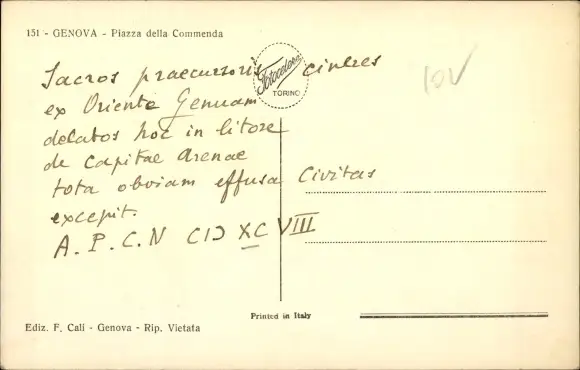 151 - GENOVA - Piazza della Commenda
Sacros praecursoris cineres
ex Oriente Genuam
delatos hoc in litore
de Capitae Arenae
tota obviam effusa Civitas
excepit.
A.P.C.N CIƆ XC VIII
Fotocelere
TORINO
10V
Printed in Italy
Ediz. F. Cali - Genova - Rip. Vietata